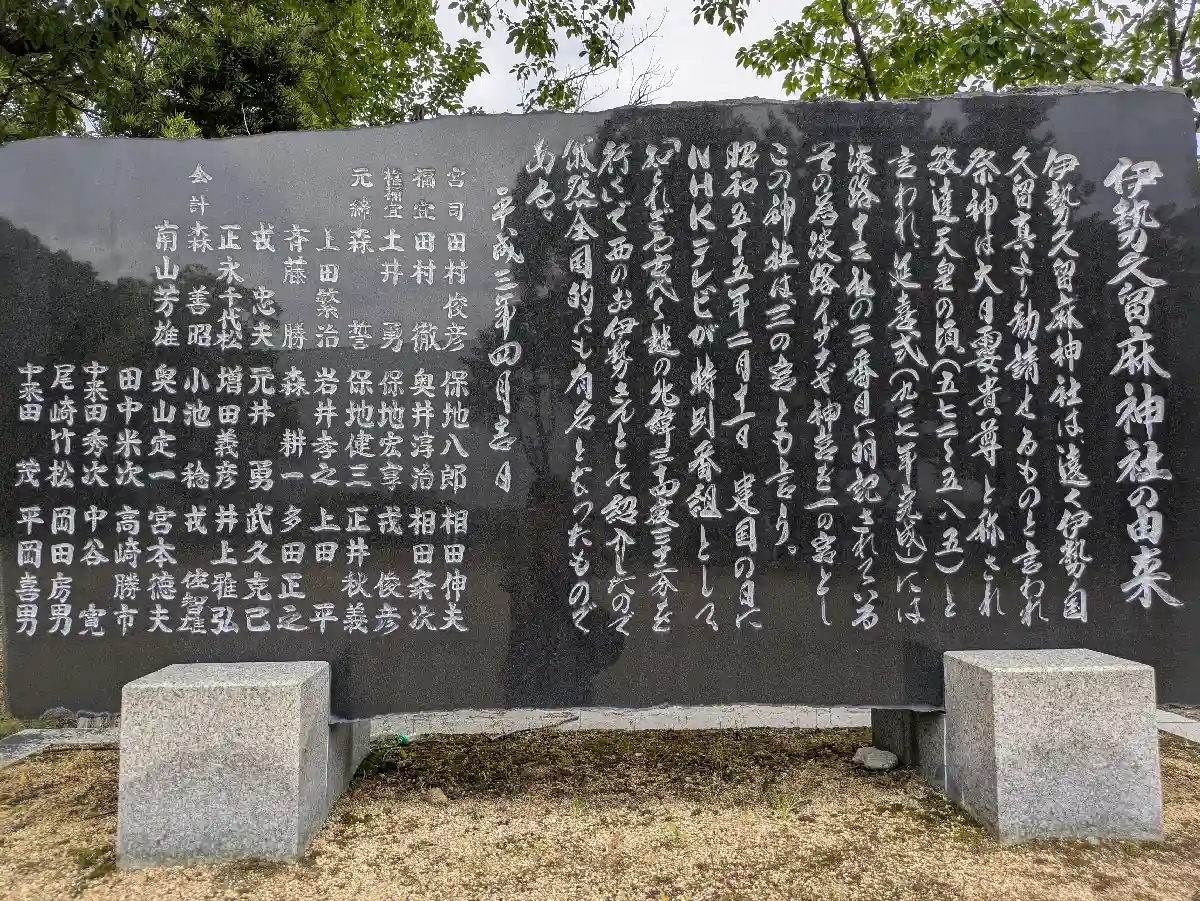 伊勢久留麻神社の由来
伊勢久留麻神社は遠く伊勢の国
久留真より勧請せるものと言われ
祭神は大日孁貴尊と称され
敏達天皇の頃(五七二〜五八五)と
言われ、延喜式(九二七年完成)には
淡路十三社の三番目に明記されている
その為淡路イザナギ神宮を一の宮とし
この神社は三の宮とも言う。
昭和五十五年二月十一日 建国の日に
NHKテレビが特別番組として
知られざる古代 謎の北緯三十四度三十二分を
行くで西のお伊勢さんとして紹介したので
俄然全国的にも有名となったもので
ある。
平成三年四月吉日
宮司 田村俊彦 保地八郎 相田伸夫
禰宜 田村 徹 奥井淳治 相田粂次
権禰宜 土井 勇 保地宏享 戎 俊彦
元締 森 誓 保地健三 正井秋義
上田繁治 岩井孝之 上田 平
斉藤 勝 森 耕一 多田正之
戎 忠夫 元井 勇 武久克己
正永千代松 増田義彦 井上雅弘
会計 森 善昭 小池 稔 戎 佐智雄
南山芳雄 奥山定一 宮本徳夫
田中米次 高崎勝市
中来田秀次 中谷 寛
尾崎竹松 岡田房男
中来田 茂 平岡喜男